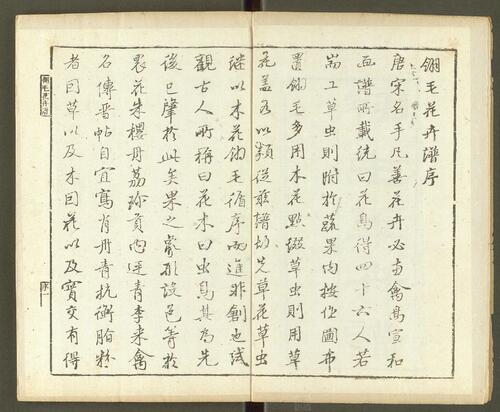 翎毛花卉譜序
唐宋名手凡善花卉必禽鳥宣和
畫譜所載統曰花鳥得四十六人若
耑工草虫則附於蔬果均按位圖布
置翎毛多用木花點綴草虫則用草
花盖各以類從茲譜先草花草虫
継以木花翎毛循序而進非創也試
觀古人所稱曰花木曰虫鳥其為先
後已肇於此矣果之象形設色等於
衆花朱櫻丹荔珍貢內廷青李来禽
名傳晋帖自宜寫肖丹青抗衡脂粉
者因草以及木因花以及實交有得
序一